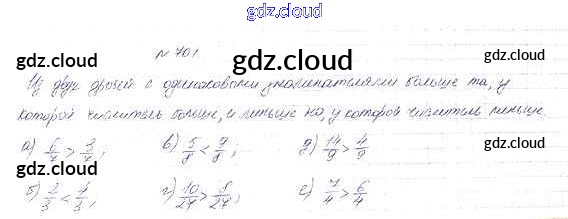 gdz.cloud
№ 701.
gdz.cloud gdz.cloud gdz.cloud
Из двух дробей с одинаковыми знаменателями больше та, у
которой числитель больше, и меньше та, у которой числитель меньше.
gdz.cloud gdz.cloud
а) 6/7 > 3/7; в) 5/8 < 7/8; д) 14/9 > 4/9
gdz.cloud gdz.cloud
б) 2/3 < 4/3; г) 10/27 > 8/27; е) 7/4 > 6/4